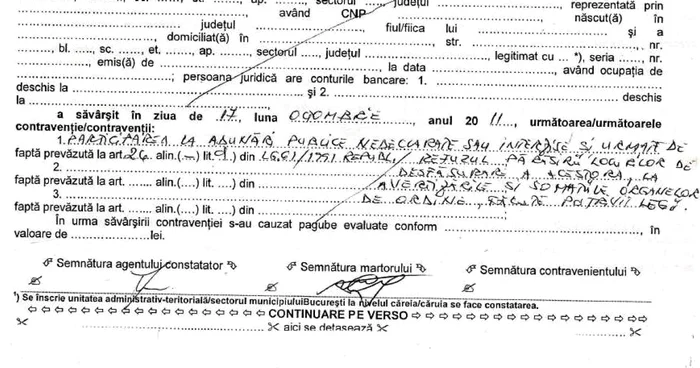 ..............................., ap. ......, sectorul ......, județul .............................., reprezentată prin
..............................., având CNP ..............................., născut(ă) în
............................... județul ..............................., fiul/fiica lui ............................... și a
..............................., domiciliat(ă) în ..............................., str. ..............................., nr.
......, bl. ......, sc. ......, et. ......, ap. ......, sectorul ......, județul ..............................., legitimat cu ... *), seria ......, nr.
..............................., emis(ă) de ............................... la data ..............................., având ocupația de
...............................; persoana juridică are conturile bancare: 1. ...............................
deschis la ............................... și 2. ............................... deschis
la ...............................
a săvârșit în ziua de 17, luna OCTOMBRIE, anul 2011, următoarea/următoarele
contravenție/contravenții:
1. PARTICIPAREA LA ADUNĂRI PUBLICE NEDECLARATE SAU INTERZISE ȘI URMATE DE
faptă prevăzută la art. 26 alin.(–) lit. d) din L 60/1991 REPUBL, REFUZUL PĂRĂSIRII LOCURILOR DE
2. ............................... DESFĂȘURARE A ACESTORA, LA
faptă prevăzută la art. ....... alin.(....) lit. ....) din ............................... AVERTIZĂRILE ȘI SOMAȚIILE ORGANELOR
3. ............................... DE ORDINE, FĂCUTE POTRIVIT LEGII.
faptă prevăzută la art. ....... alin.(....) lit. ....) din ...............................;
În urma săvârșirii contravenției s-au cauzat pagube evaluate conform ..............................., în
valoare de ...............lei.
Semnătura agentului constatator Semnătura martorului Semnătura contravenientului
*) Se înscrie unitatea administrativ-teritorială/sectorul municipiuluiBucurești la nivelul căreia/căruia se face constatarea.
CONTINUARE PE VERSO
aici se detașează